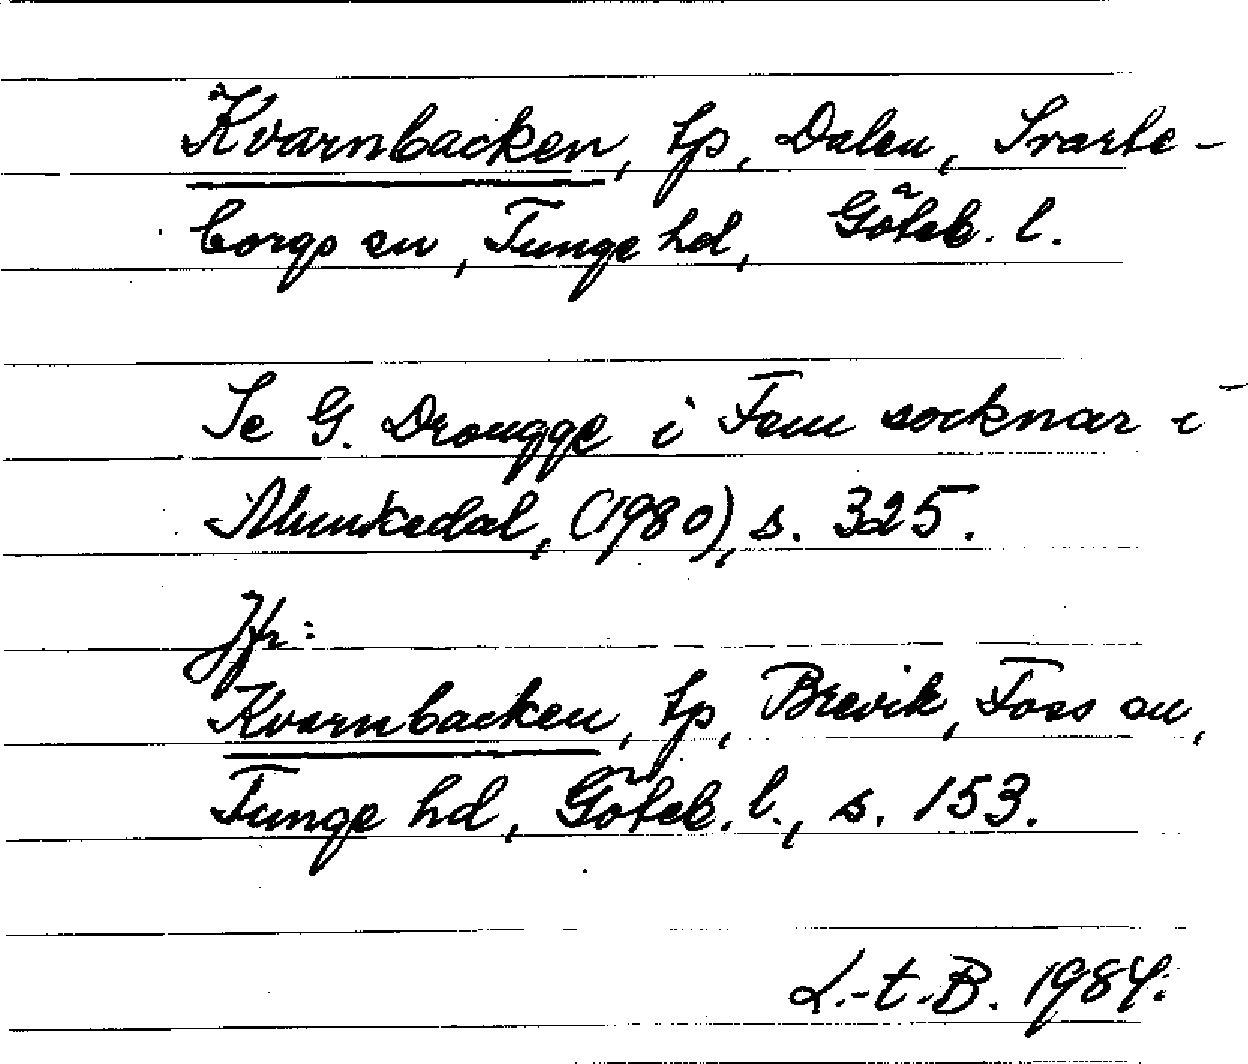 Kvarnbacken, tp, Dalen, Svarte-
borgs sn, Tunge hd, Göteb. l.
Se G. Drougge i Fem socknar i
Munkedal, (1980), s. 325.
Jfr:
Kvarnbacken, tp, Brevik, Foss sn,
Tunge hd, Göteb. l., s. 153.
L.-t.-B. 1984.